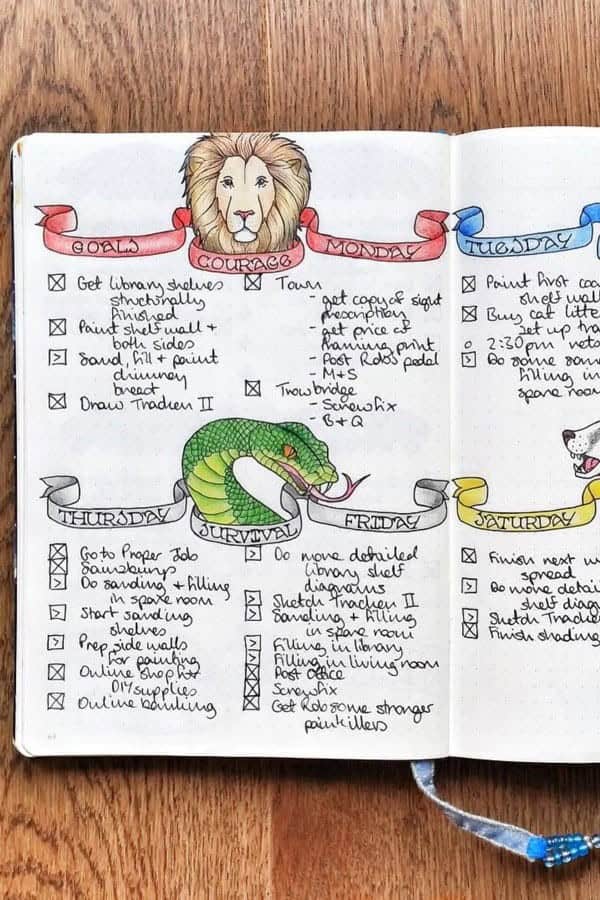 GOALS
COURAGE
MONDAY
Get library shelves
structurally
finished
Paint shelf wall +
both sides
Sand, fill + paint
chimney
breast
Draw Tracker II
Town
- get copy of sight
prescription
- get price of
framing print
- Post Rob's pedal
- M+S
Trowbridge
- Screwfix
- B+Q
TUESDAY
Paint first coa
shelf wall
Buy cat litte
set up tra
2:30pm vets
Do some san
filling in
spare room
THURSDAY
SURVIVAL
FRIDAY
Go to Proper Job
Sainsburys
Do sanding + filling
in spare room
Start sanding
shelves
Prep side walls
for painting
Online shop for
DIY supplies
Online banking
Do more detailed
library shelf
diagrams
Sketch Tracker II
Sanding + filling
in spare room
Filling in library
Filling in living room
Post Office
Screwfix
Get Rob some stronger
painkillers
SATURDAY
Finish next w
spread
Do more detai
shelf diag
Sketch Tracke
Finish shading